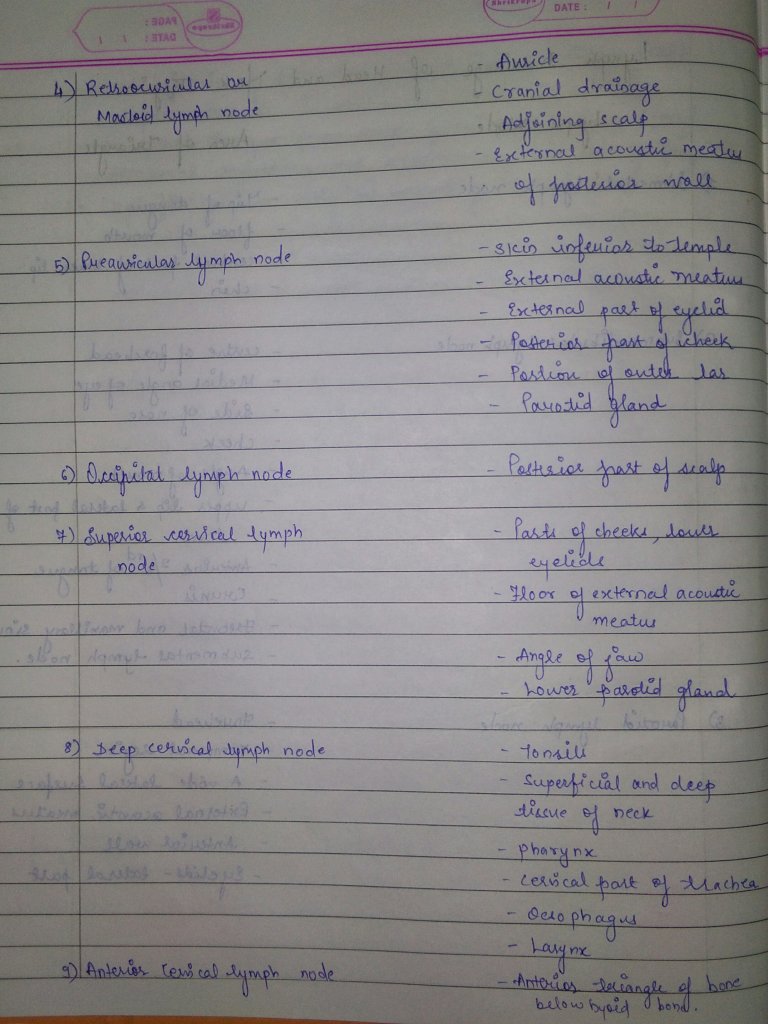 DATE: / /
PAGE:
DATE: / /
- Auricle
4) Retroauricular or
- Cranial drainage
Mastoid lymph node
Adjoining scalp
- External acoustic meatus
of posterior wall
- Skin inferior to temple
5) Preauricular lymph node
- External acoustic meatus
- External part of eyelid
- Posterior part of cheek
- Portion of outer
- Parotid gland
6) Occipital lymph node
- Posterior part of scalp
7) Superior cervical lymph
- Parts of cheeks, lower
node
eyelids
- Floor of external acoustic
meatus
- Angle of jaw
- Lower parotid gland
8) Deep cervical lymph node
- Tonsils
- Superficial and deep
tissue of neck
- Pharynx
- Cervical part of trachea
- Oesophagus
- Larynx
9) Anterior Cervical lymph node
- Anterior triangle of bone
below hyoid bone.